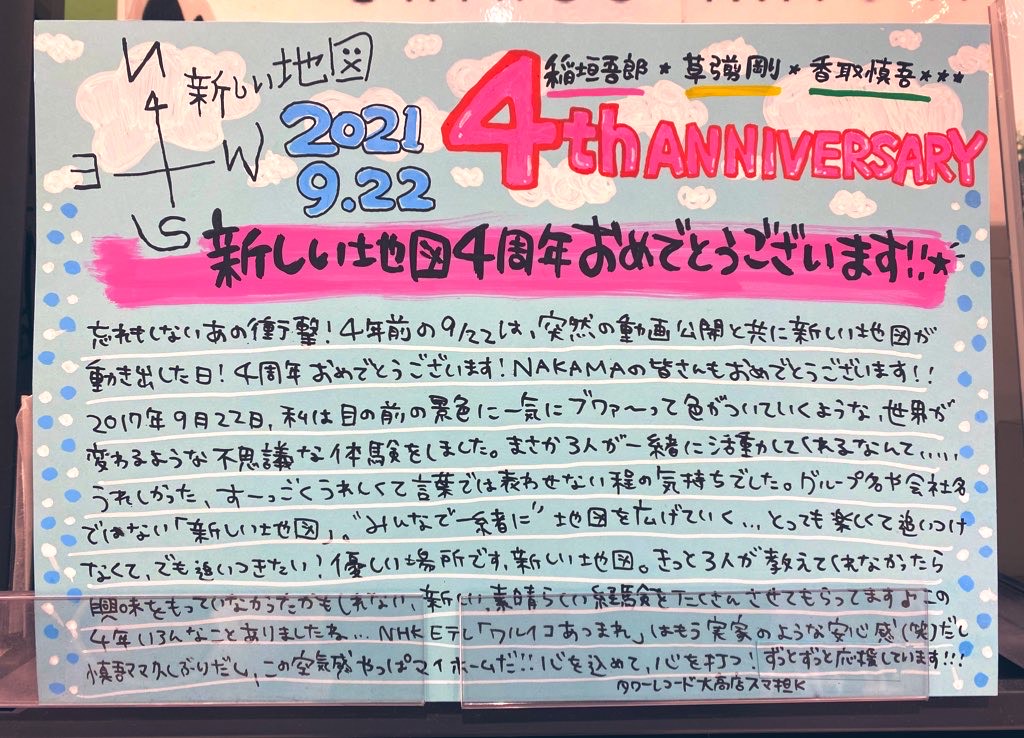 N
W
E
S
新しい地図
2021
9.22
稲垣吾郎 * 草彅剛 * 香取慎吾***
4th ANNIVERSARY
新しい地図4周年おめでとうございます!!★
忘れもしないあの衝撃!4年前の9/22は、突然の動画公開と共に新しい地図が
動き出した日!4周年おめでとうございます!NAKAMAの皆さんもおめでとうございます!!
2017年9月22日、私は目の前の景色に一気にブワァ〜って色がついていくような、世界が
変わるような不思議な体験をしました。まさか3人が一緒に活動してくれるなんて.....
うれしかった、すーっごくうれしくて言葉では表わせない程の気持ちでした。グループ名や会社名
ではない「新しい地図」。"みんなで一緒に"地図を広げていく...とっても楽しくて追いつけ
なくて、でも追いつきたい!優しい場所です、新しい地図。きっと3人が教えてくれなかったら
興味をもっていなかったかもしれない、新しい、素晴らしい経験をたくさんさせてもらってますよこの
4年いろんなことありましたね...NHK Eテレ「ワルイコあつまれ」はもう実家のような安心感(笑)だし
慎吾ママ久しぶりだし、この空気感やっぱマイホームだ!!心を込めて、心を打つ!ずっとずっと応援しています!!!
タワーレコード大高店スマ担K